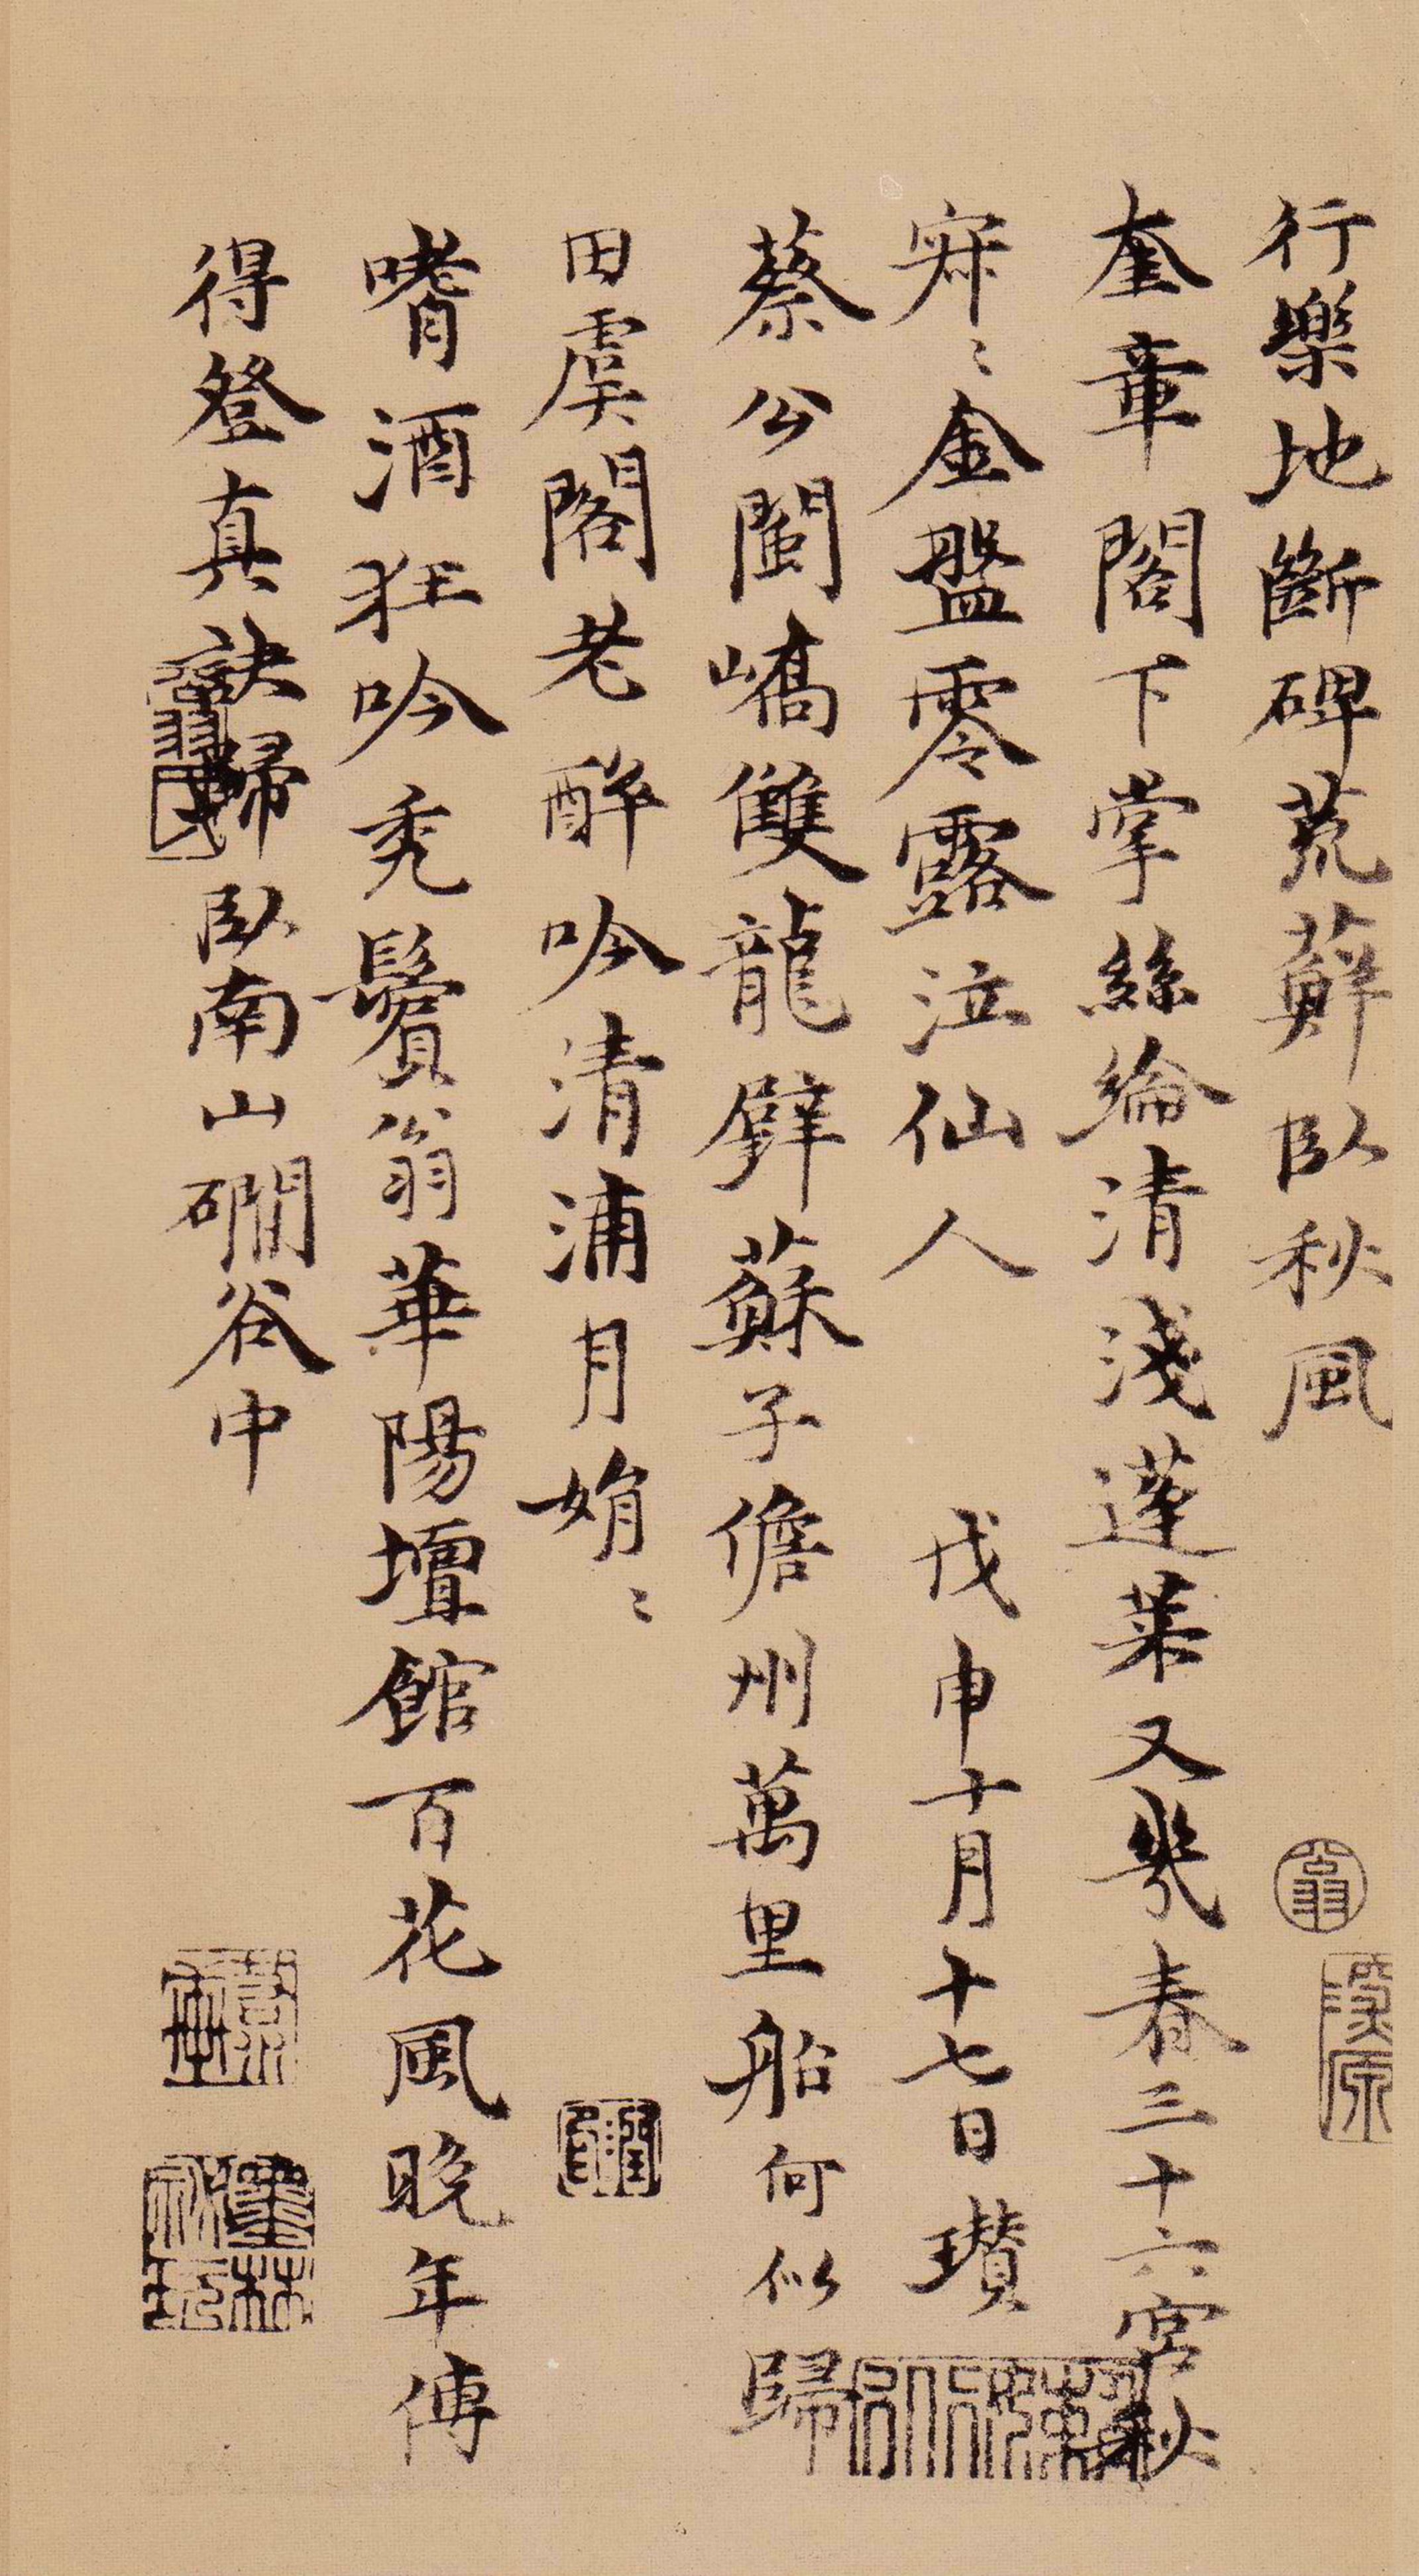 行樂地斷碑荒蘚臥秋風
奎章閣下掌絲綸清淺蓬萊又幾春三十六宮秋
寂〻金盤零露泣仙人　戊申十月十七日瓚
蔡公閩嶠雙龍璧蘇子儋州萬里船何似歸
田虞閣老醉吟清浦月娟〻
嗜酒狂吟禿鬢翁華陽壇館百花風晚年傳
得登真訣歸臥南山磵谷中